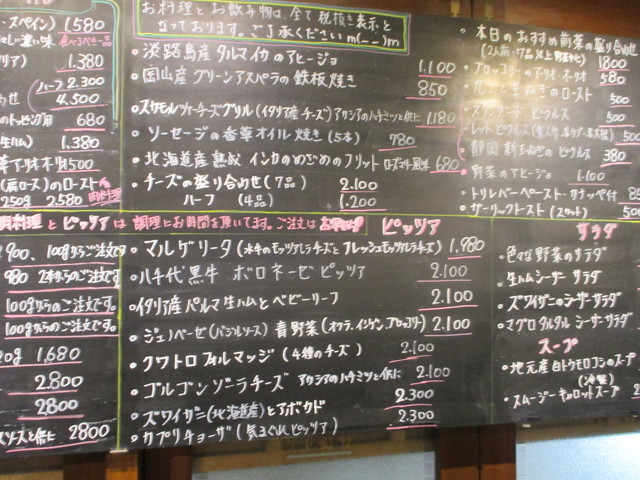 ・スペイン) 1,580
1.380
ハーフ 2.300
4.500
のトッピング用 680
生ハム) 1.380
1500
(肩ロース)のロースト
250g 2580
お料理とお飲み物は、全て税抜き表示と
なっております。ご了承くださいm(__)m
・淡路島産タルマイカのアヒージョ 1.100
・岡山産グリーンアスパラの鉄板焼き 850
・スカモルツァチーズグリル(イタリア産チーズ)アカシアのハチミツと供に 1.180
・ソーセージの香草オイル焼き(5本) 780
・北海道産熟成インカのめざめのフリットローズマリー風味 680
・チーズの盛り合わせ(7品) 2.100
ハーフ (4品) 1.200
・本日のおすすめ前菜の盛り合せ
(2人前・7品以上野菜など) 1800
・ブロッコリーのアーリオ・オーリオ 580
500
ピクルス 500
500
・静岡 新玉ねぎのピクルス 380
・野菜のアヒージョ 1.100
・トリレバーペースト・サナッペ付
・ガーリックトースト(2カット) 500
料理とピッツァは調理にお時間を頂いてます。ご注文はお早めに! ピッツァ
・マルゲリータ(水牛のモッツァレラチーズとフレッシュモッツァレラチーズ) 1.980
・八千代黒牛 ボロネーゼピッツァ 2.100
・イタリア産パルマ生ハムとベビーリーフ 2.100
・ジェノベーゼ(バジルソース)青野菜(オクラ、インゲン、ブロッコリー) 2.100
・クワトロフォルマッジ(4種のチーズ) 2.100
・ゴルゴンゾーラチーズ アカシアのハチミツと供に 2.100
・ズワイガニ(北海道産)とアボカド 2.300
・カプリチョーザ(気まぐれピッツァ) 2.300
900、100gからご注文
980 2本からのご注文です
100gからのご注文です。
100gからのご注文です。
20g 1,680
2.800
2800
ソースと供に 2800
サラダ
・色々な野菜のサラダ
・生ハムシーザーサラダ
・ズワイガニのシーザーサラダ
・マグロタルタルシーザーサラダ
スープ
・地元産白トウモロコシのスープ
(冷製)
・スムージーキャロットスープ